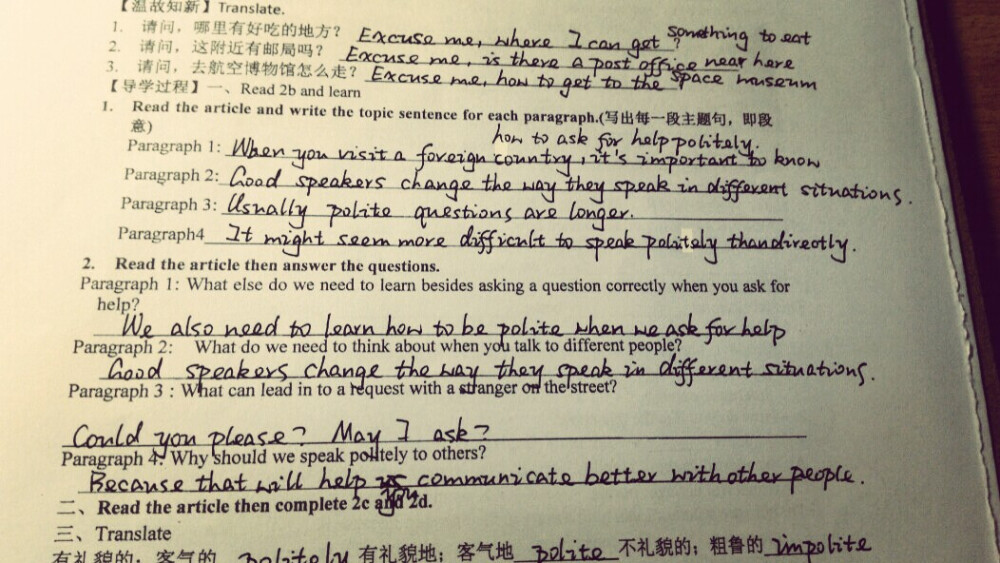 【温故知新】Translate.
1. 请问，哪里有好吃的地方？ Excuse me, where I can get something to eat?
2. 请问，这附近有邮局吗？ Excuse me, is there a post office near here
3. 请问，去航空博物馆怎么走？ Excuse me, how to get to the space museum
【导学过程】一、Read 2b and learn
1. Read the article and write the topic sentence for each paragraph.(写出每一段主题句，即段
意)
how to ask for help politely.
Paragraph 1: When you visit a foreign country, it's important to know
Paragraph 2: Good speakers change the way they speak in different situations.
Paragraph 3: Usually polite questions are longer.
Paragraph4 It might seem more difficult to speak politely than directly.
2. Read the article then answer the questions.
Paragraph 1: What else do we need to learn besides asking a question correctly when you ask for
help?
We also need to learn how to be polite when we ask for help
Paragraph 2: What do we need to think about when you talk to different people?
Good speakers change the way they speak in different situations.
Paragraph 3 : What can lead in to a request with a stranger on the street?
Could you please? May I ask?
Paragraph 4: Why should we speak politely to others?
Because that will help you communicate better with other people.
二、Read the article then complete 2c and 2d.
三、Translate
有礼貌的；客气的 politely 有礼貌地；客气地 polite 不礼貌的；粗鲁的 impolite